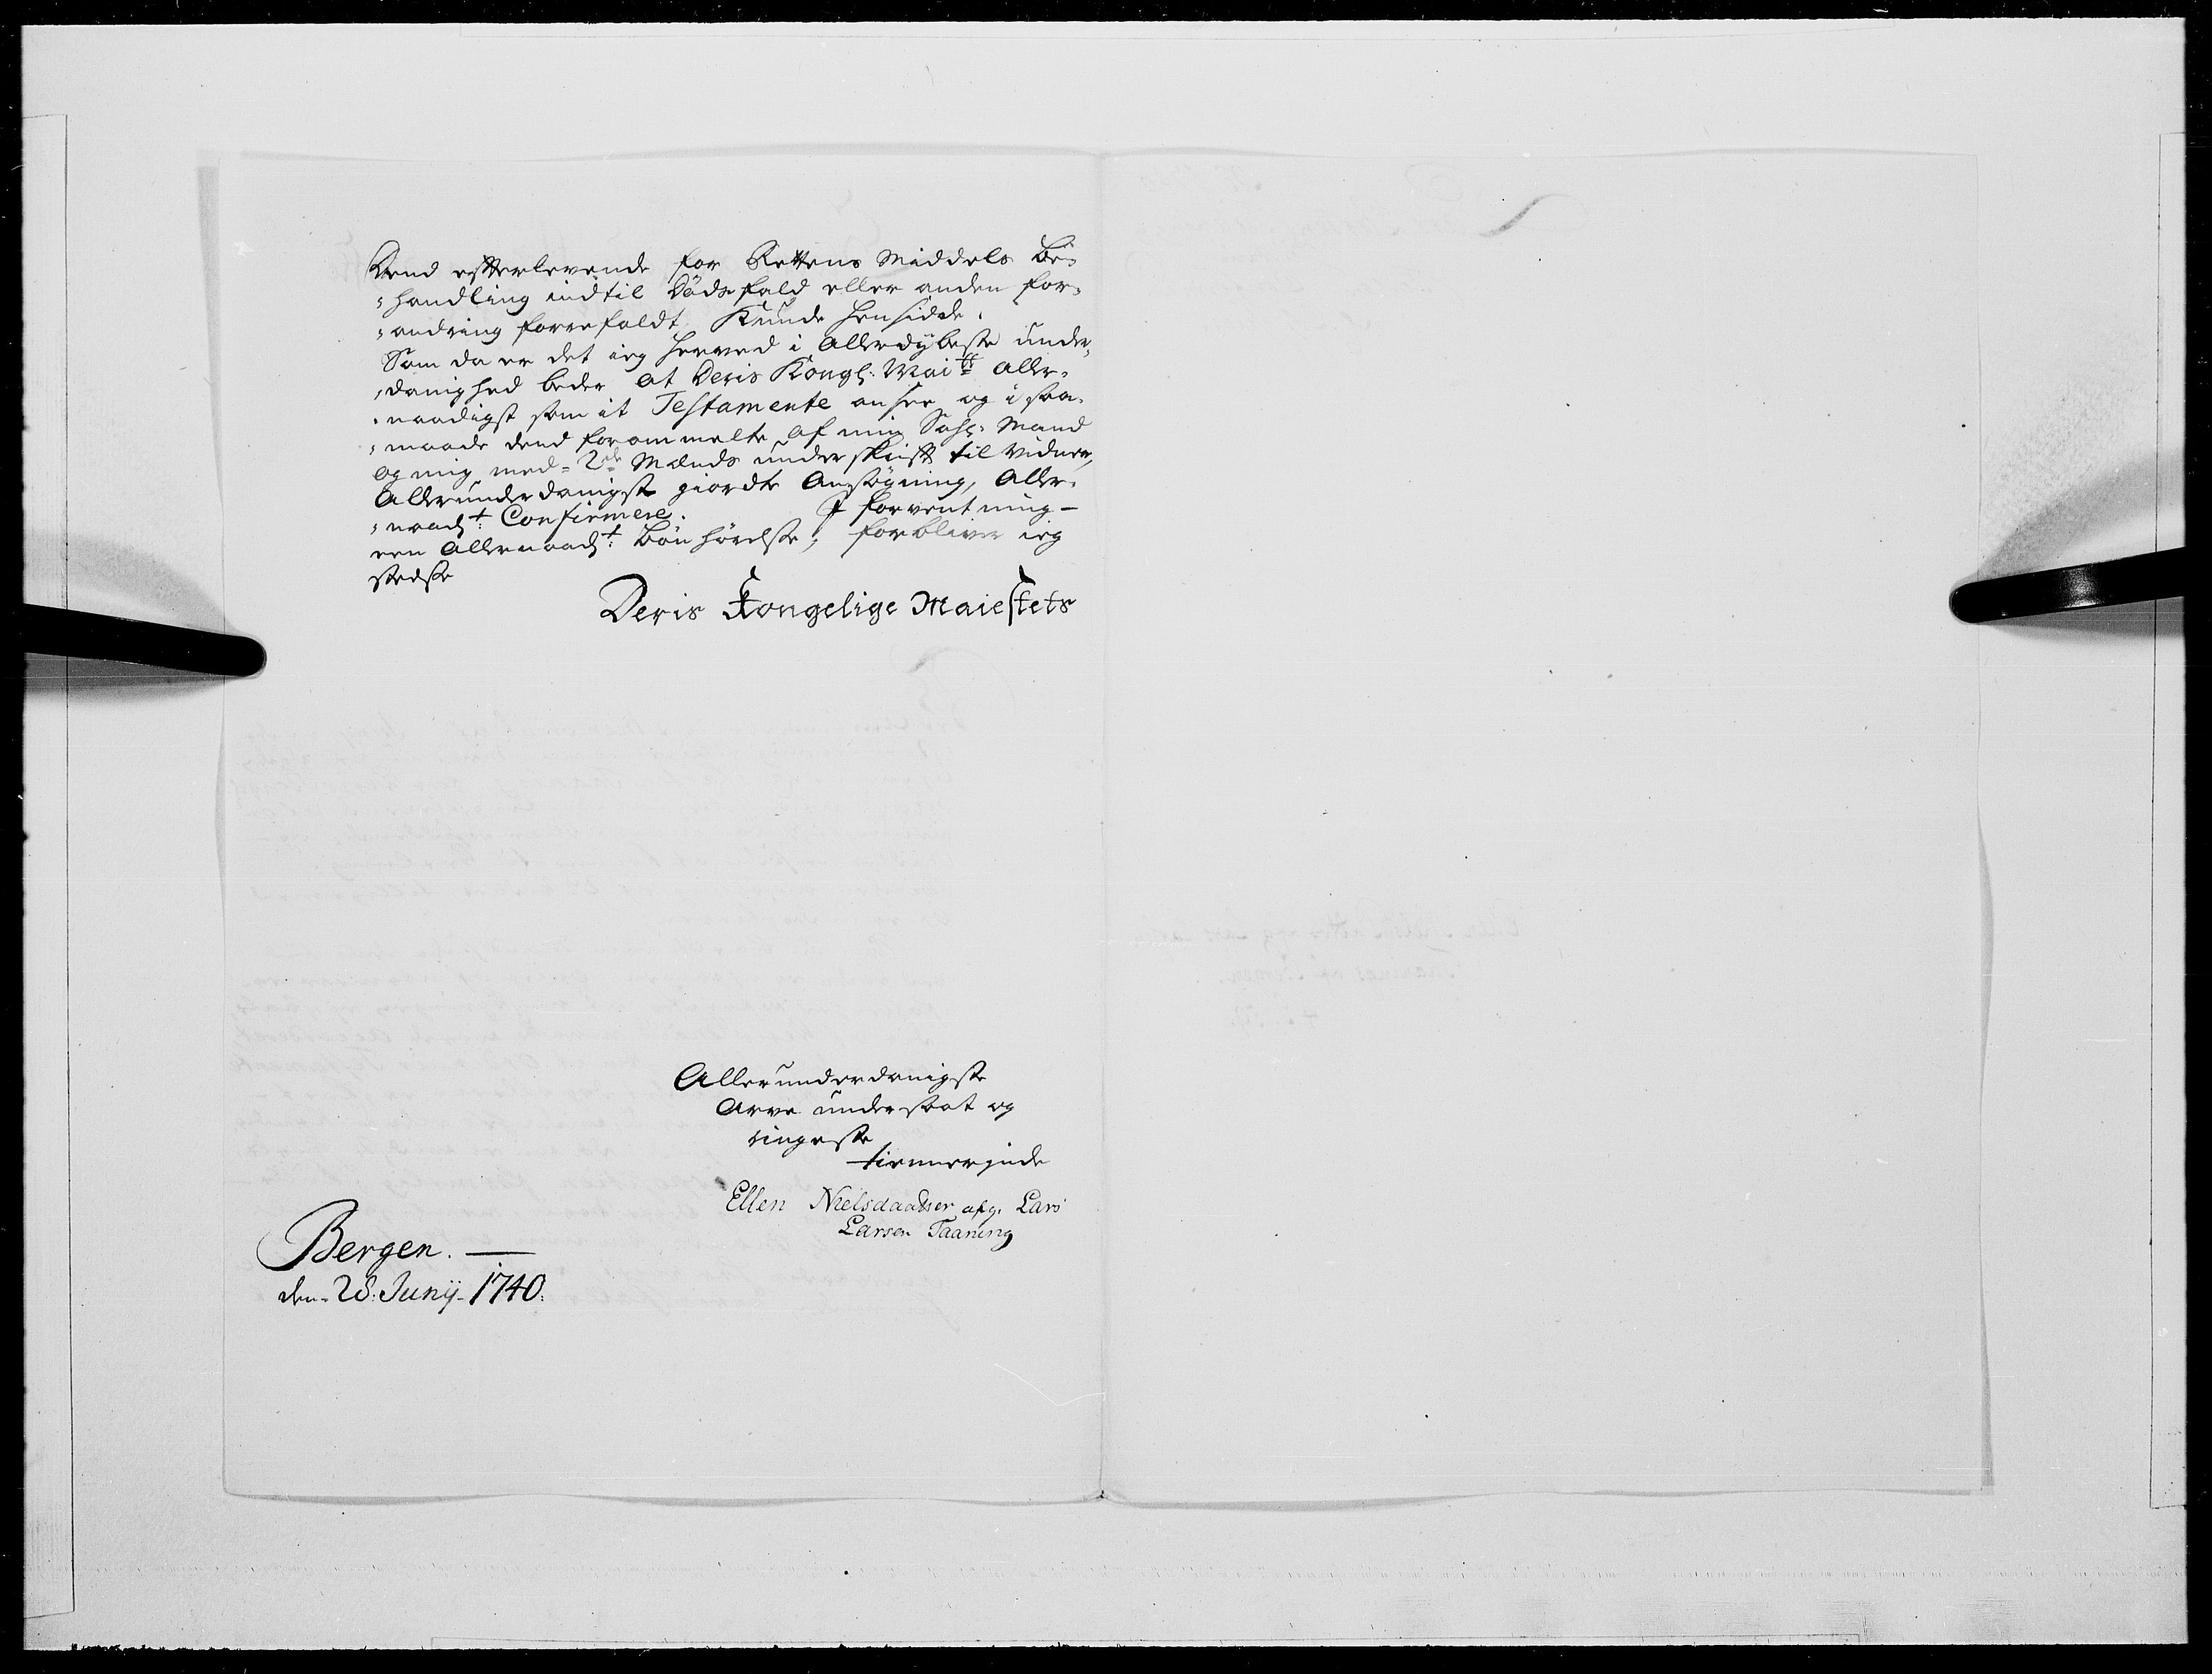 Dend efterlevende for Rettens Middels Be-
handling indtil Dødsfald eller anden for-
andring forrefaldt, Kunde hensidde.
Som da er det ieg herved i Allerdybeste under-
danighed beder at Deris Kongl: Mai:tt aller-
naadigst som it Testamente ansee og i saa-
maade dend forommelte af min Sahl: Mand
og mig med 2de Mænds underskrift til vidner,
Allerunderdanigst giordte Ansøgning, Aller-
naad:t Confirmere. I forventning-
een Allernaad:t Bøn hørelse, forbliver ieg
stedse
Deris Kongelige Maiestets
Allerunderdanigste
Arve undersaat og
ringeste
tiennerinde
Ellen Nielsdaatter afg. Lars
Larsen Taaning
Bergen.
den 28. Junij 1740.